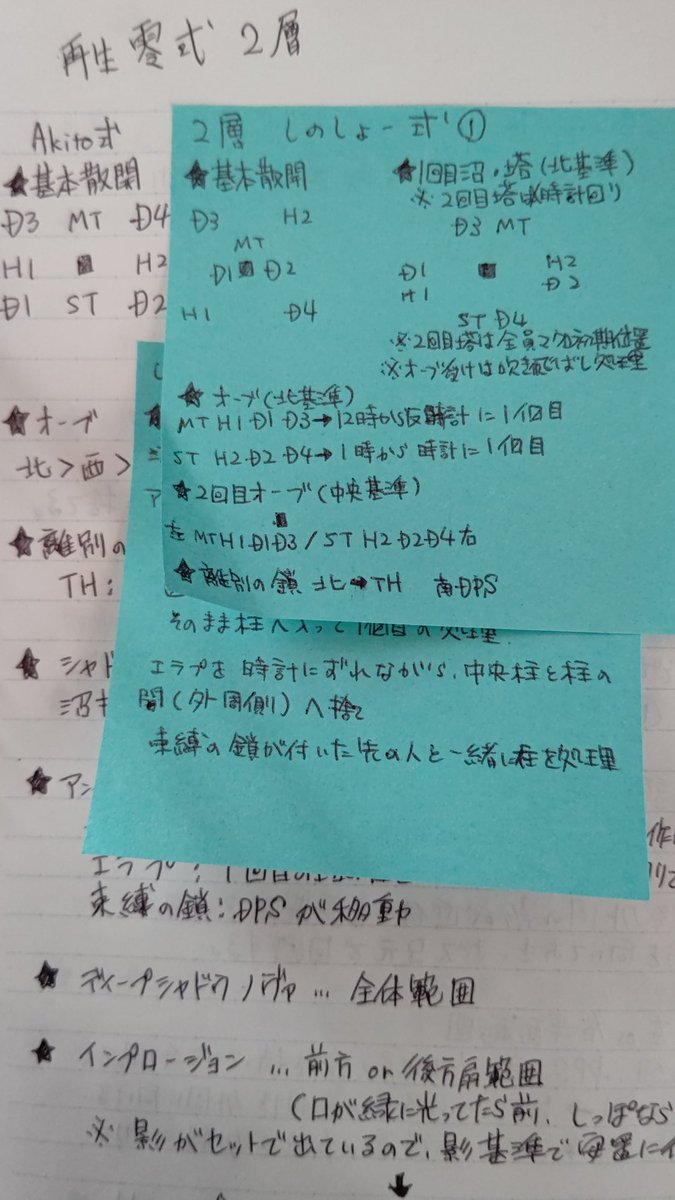 再生零式 2層
Akito式
★基本散開
Ð3 MT Ð4
H1 H2
Ð1 ST Ð2
★オーブ
北>西>
★離別の
TH:
★シャド
沼
★アン
2層 しのしょー式①
★基本散開
Ð3 H2
MT
Ð1 Ð2
H1 Ð4
★1回目沼・塔(北基準)
※2回目塔は時計回り
Ð3 MT
Ð1 H2
H1 Ð2
ST Ð4
※2回目塔は全員マクロ初期位置
※オーブ受けは吹き飛ばし処理
★オーブ(北基準)
MT H1 Ð1 Ð3→12時から反時計に1個目
ST H2 Ð2 Ð4→1時から時計に1個目
★2回目オーブ(中央基準)
左 MT H1 Ð1 Ð3 / ST H2 Ð2 Ð4 右
★離別の鎖 北→TH 南ÐPS
そのまま柱へ入って1個目の処理.
エラプを時計にずれながら、中央柱と柱の
間(外周側)へ捨て
束縛の鎖が付いた先の人と一緒に柱を処理
エラプ: 1回目の
束縛の鎖:ÐPSが移動
★ディープシャドウノヴァ…全体範囲
★インプロージョン…前方or後方扇範囲
(口が緑に光ってたら前、しっぽなら
※影がセットで出ているので、影基準で安置に
↓